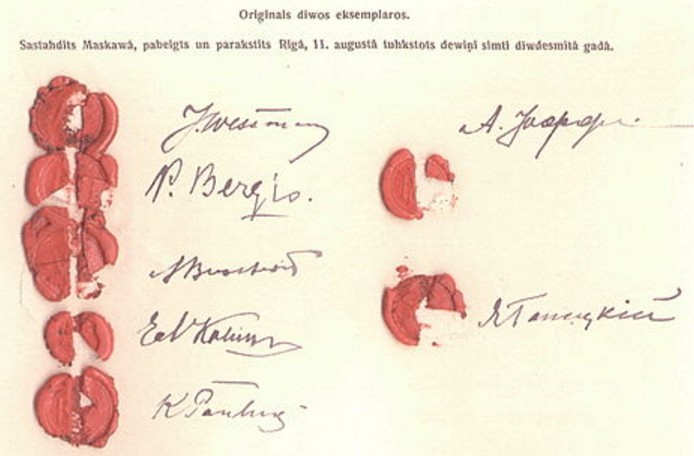 Originals diwos eksemplaros.
Sastahdits Maskawâ, pabeigts un parakstits Rigâ, 11. augustâ tuhkstots dewiņi simti diwdesmitâ gadâ.
J. Wessmann
A. Іоффе.
P. Bergis.
A Buschewiz
Я Ганецкій
Ed Kalning
K Pauluk